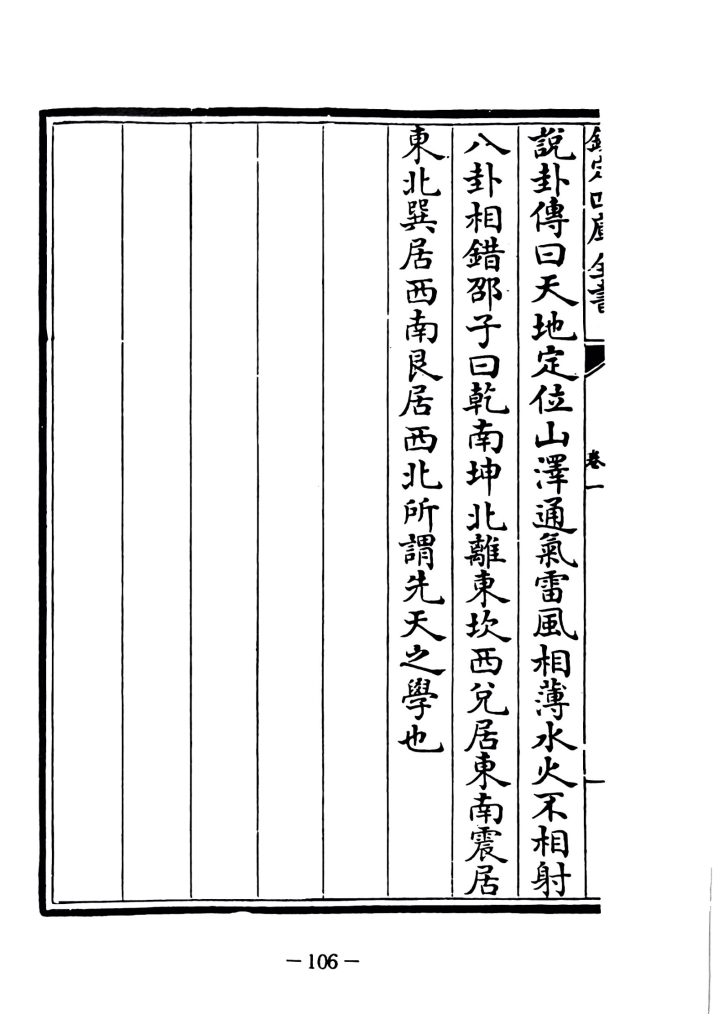 欽定四庫全書
卷一
說卦傳曰天地定位山澤通氣雷風相薄水火不相射
八卦相錯邵子曰乾南坤北離東坎西兌居東南震居
東北巽居西南艮居西北所謂先天之學也
— 106 —